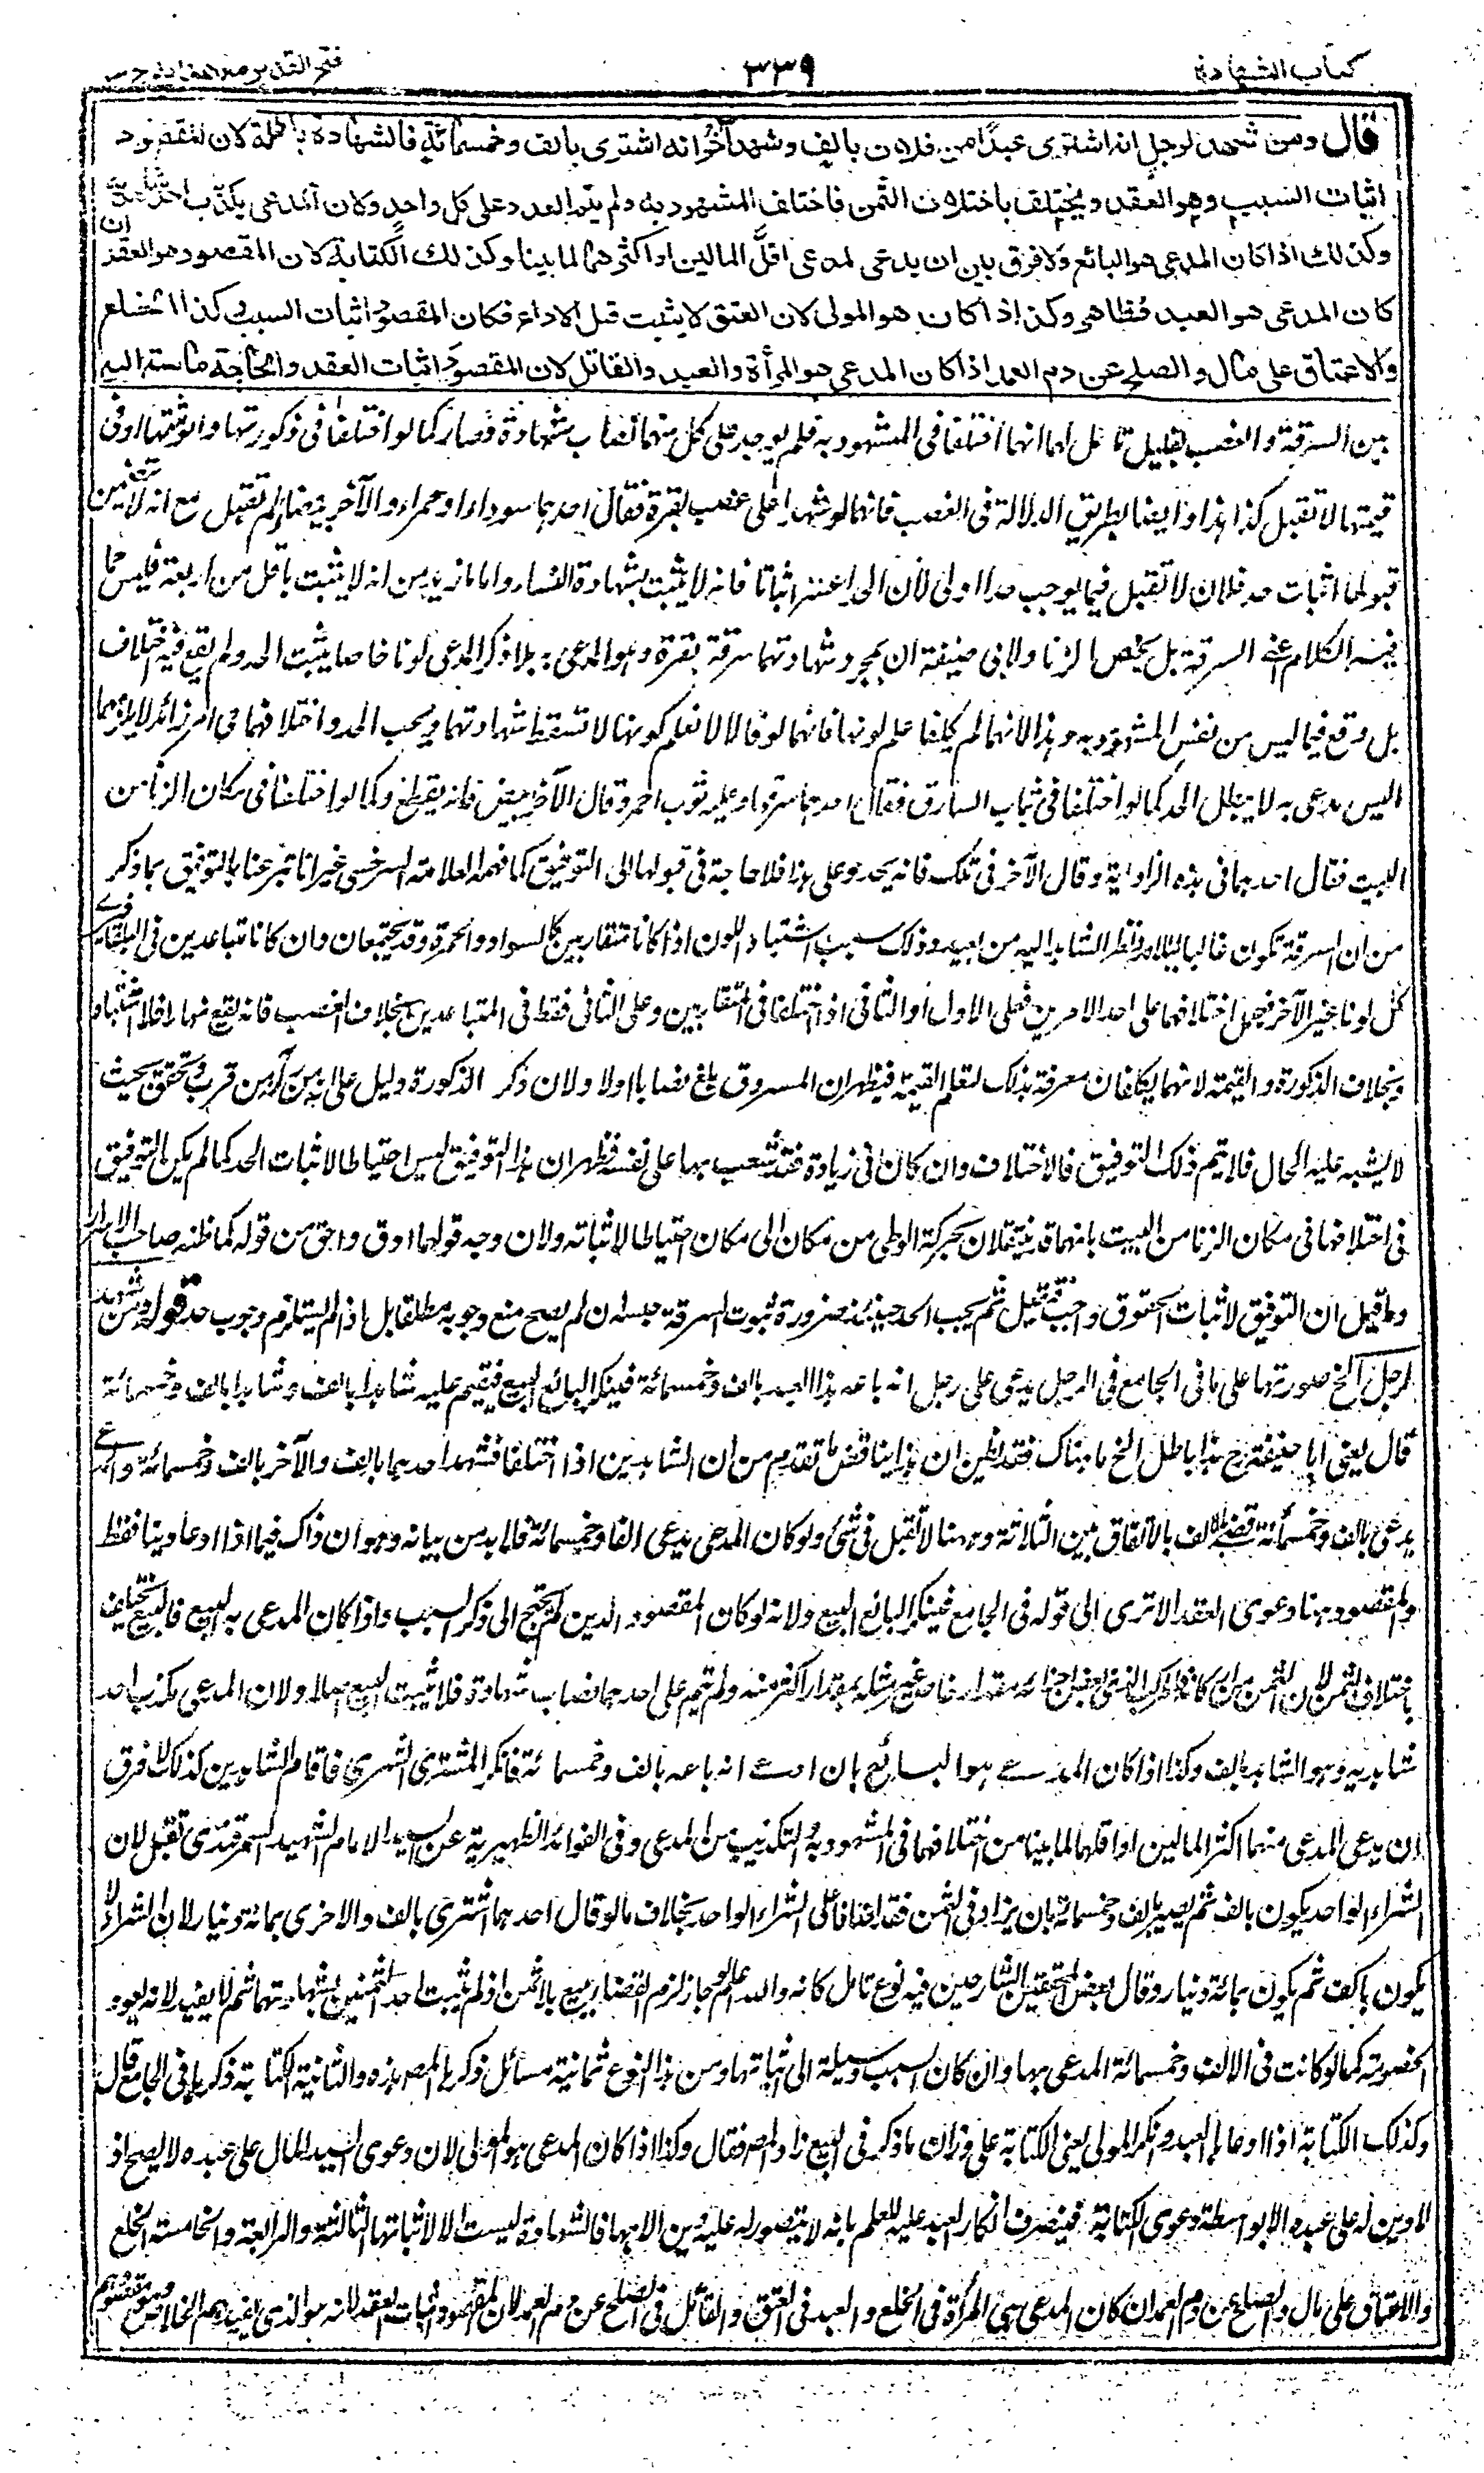 كتاب الشهادة ٣٣٩ فتح القدير مع الهداية ج ٣
قال ومن شهد لرجل انه اشترى عبدًا من فلان بالف وشهد آخر انه اشترى بالف وخمسمائة فالشهادة باطلة لان المقصود
اثبات السبب وهو العقد ويختلف باختلاف الثمن فاختلف المشهود به ولم يتم العدد على كل واحد ولان المدعى يكذب احد شاهديه
وكذلك اذا كان المدعى هو البائع ولا فرق بين ان يدعى المدعى اقل المالين او اكثرهما لما بينا وكذلك الكتابة لان المقصود هو العقد ان
كان المدعى هو العبد فظاهر وكذا اذا كان هو المولى لان العتق لا يثبت قبل الاداء فكان المقصود اثبات السبب وكذا الخلع
والاعتاق على مال والصلح عن دم العمد اذا كان المدعى هو المرأة والعبد والقاتل لان المقصود اثبات العقد والحاجة ماسة اليه
بين السرقة والغصب بقليل تامل لهما انهما اختلفا فى المشهود به فلم يوجد على كل منهما نصاب شهادة وصار كما لو اختلفا فى ذكورتها وانوثتها او فى
قيمتها لا تقبل كذا هذا وايضا بطريق الدلالة فى الغصب فانهما لو شهدا على غصب بقرة فقال احدهما سوداء او حمراء والآخر بيضاء لم تقبل مع انه لا يتضمن
قبولها اثبات حد فلان لا تقبل فيما يوجب حدا اولى لان الحد اعسر اثباتا فانه لا يثبت بشهادة النساء واما ما زيد من انه لا يثبت باقل من اربعة فليس مما
فيه الكلام اعنى السرقة بل يخص الزنا ولابى حنيفة ان بمجرد شهادتهما سرقة بقرة وهو المدعى به بلا ذكر المدعى لونا خاصا يثبت الحد ولم يقع فيه اختلاف
بل وقع فيما ليس من نفس المشهود به وهذا لانهما لم يكلفا علم لونها فانهما لو قالا لا نعلم كونها لا تسقط شهادتهما ويجب الحد واختلافهما فى امر زائد لا يلزمهما
اليس مدعى به لا يبطل الحد كما لو اختلفا فى ثياب السارق فقال احدهما سرقها وعليه ثوب احمر وقال الآخر ابيض فانه يقطع وكما لو اختلفا فى مكان الزنا من
البيت فقال احدهما فى هذه الزاوية وقال الآخر فى تلك فانه يحد وعلى هذا فلا حاجة فى قبولها الى التوفيق كما فهمه العلامة السرخسى غير انا تبرعنا بالتوفيق بما ذكر
من ان السرقة تكون غالبا ليلا ونظر الشاهد اليه من بعيد وذلك سبب اشتباه اللون اذا كانا متقاربين كالسواد والحمرة وقد يجتمعان وان كانا متباعدين فى البلقاء فرأى
كل لونا غير الآخر فحمل اختلافهما على احد الامرين فعلى الاول او الثانى اذا اختلفا فى المتقاربين وعلى الثانى فقط فى المتباعدين بخلاف الغصب فانه يقع نهارا فلا اشتباه
وبخلاف الذكورة والقيمة لانهما يكلفان معرفة ذلك لتعلم القيمة فيظهر ان المسروق بلغ نصابا اولا ولان ذكر الذكورة دليل على انه رآه من قرب وتحقق بحيث
لا يشتبه عليه الحال فلا يتم ذلك التوفيق فالاختلاف وان كان فى زيادة فقد شعب بها على نفسه فظهر ان هذا التوفيق ليس احتياطا لاثبات الحد كما لم يكن التوفيق
فى اختلافهما فى مكان الزنا من البيت بانهما قد ينتقلان بحركة الوطى من مكان الى مكان احتياطا لاثباته ولان وجه قولهما ادق واحق من قوله كما ظنه صاحب الاسرار
وما قيل ان التوفيق لاثبات الحقوق واجب فتقبل ثم يجب الحد حينئذ ضرورة ثبوت السرقة حسا ان لم يصح منع وجوبه مطلقا بل اذا لم يستلزم وجوب حد قوله ومن شهد
لرجل الخ صورتها على ما فى الجامع فى الرجل يدعى على رجل انه باعه هذا العبد بالف وخمسمائة فينكر البائع البيع فيقيم عليه شاهدا بالف وشاهدا بالف وخمسمائة
قال يعنى ابا حنيفة رح هذا باطل الخ ما هناك فقد يظن ان هذا يناقض ما تقدم من ان الشاهدين اذا اختلفا فشهد احدهما بالف والآخر بالف وخمسمائة والمدعى
يدعى بالف وخمسمائة قضى بالف بالاتفاق بين الثلاثة وههنا لا تقبل فى شئ ولو كان المدعى يدعى الفا وخمسمائة فلا بد من بيانه وهو ان ذاك فيما اذا ادعا دينا فقط
والمقصود هنا دعوى العقد الا ترى الى قوله فى الجامع فينكر البائع البيع ولانه لو كان المقصود الدين لم يحتج الى ذكر السبب واذا كان المدعى به البيع فالبيع يختلف
باختلاف الثمن لان الثمن من اركانه والمركب الذى بعض اجزائه مقدار خاص غير مثله بمقدار اكثر منه ولم يتم على احدهما نصاب شهادة فلا يثبت البيع اصلا ولان المدعى مكذب احد
شاهديه وهو الشاهد بالف وكذا اذا كان المدعى هو البائع بان ادعى انه باعه بالف وخمسمائة فانكر المشترى الشرى فاقام الشاهدين كذلك لا فرق
ان يدعى المدعى منهما اكثر المالين او اقلهما لما بينا من اختلافهما فى المشهود به والتكذيب من المدعى وفى الفوائد الظهيرية عن السيد الامام الشهيد السمرقندى تقبل لان
الشراء الواحد يكون بالف ثم يصير بالف وخمسمائة بان يزاد فى الثمن فقد اتفقا على الشراء الواحد بخلاف ما لو قال احدهما اشترى بالف والآخر بمائة دينار لان الشراء لا
يكون بالف ثم يكون بمائة دينار وقال بعض المحققين الشارحين فيه نوع تامل كانه والله اعلم لو جاز لزم القضاء ببيع بلا ثمن اذ لم يثبت احد الثمنين بشهادتهما ثم لا يفيد لانه يعود
الخصومة كما لو كانت فى الالف وخمسمائة المدعى بها وان كان السبب وسيلة الى اثباتها ومن هذا النوع ثمانية مسائل ذكرها المص هذه والثانية الكتابة ذكرها فى الجامع قال
وكذلك الكتابة اذا ادعاها العبد وانكر المولى يعنى الكتابة على وزان ما ذكر فى البيع زاد المص فقال وكذا اذا كان المدعى هو المولى لان دعوى السيد المال على عبده لا يصح اذ
لا دين له على عبده الا بواسطة دعوى الكتابة فينصرف انكار العبد عليه للعلم بانه لا يتصور له عليه دين الا بها فالشهادة ليست الا لاثباتها الثالثة والرابعة والخامسة الخلع
والاعتاق على مال والصلح عن دم العمد ان كان المدعى هى المرأة فى الخلع والعبد فى العتق والقاتل فى الصلح عن دم العمد لان المقصود اثبات العقد لانه هو الذى يفيدهم الخلاص وهو مقصودهم